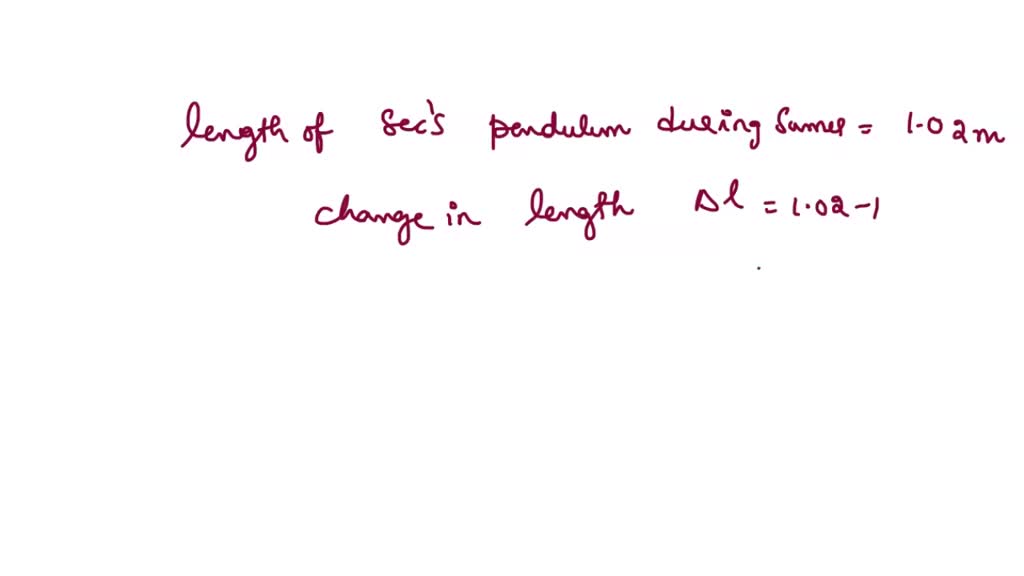 length of sec's pendulum during Sumer = 1.02m
change in length Δl = 1.02-1